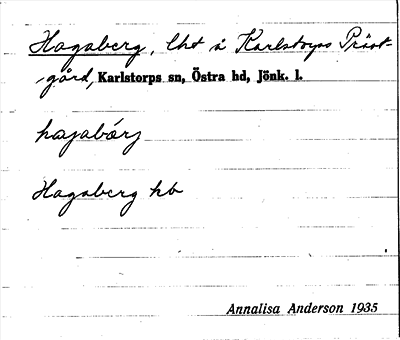 Hagaberg, lht å Karlstorps Präst-
gård, Karlstorps sn, Östra hd, Jönk. l.
hagabärj
Hagaberg kb
Annalisa Anderson 1935